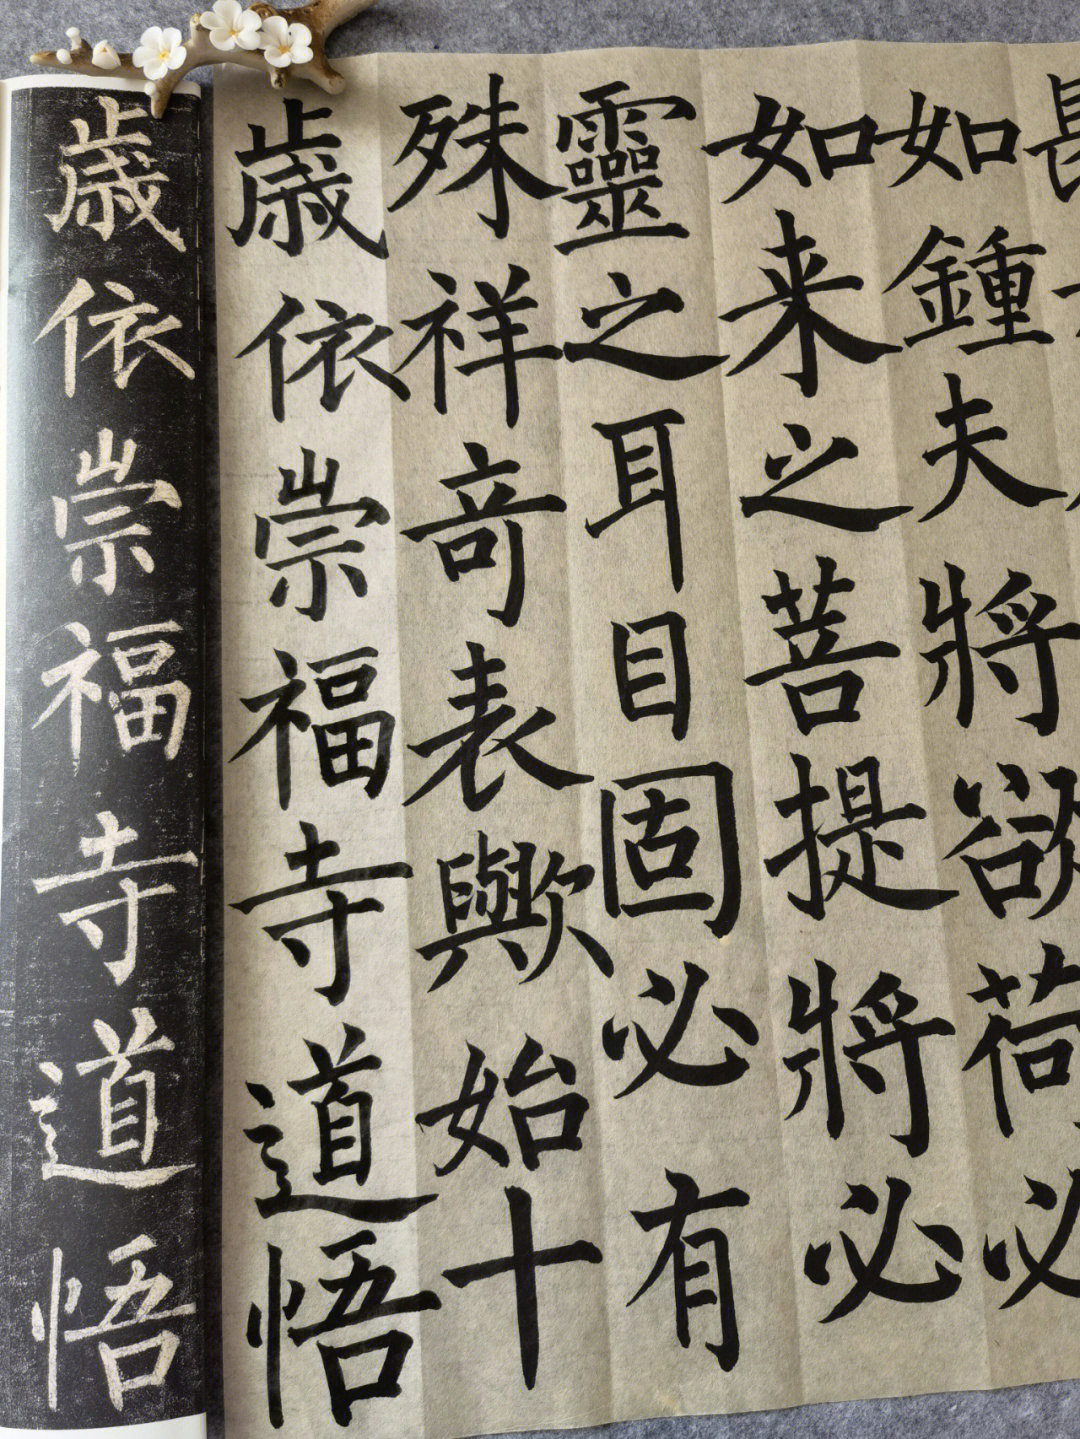 如鍾夫將欲荷必
如来之菩提將必
靈之耳目固必有
殊祥竒表歟始十
歳依崇福寺道悟
歳依崇福寺道悟